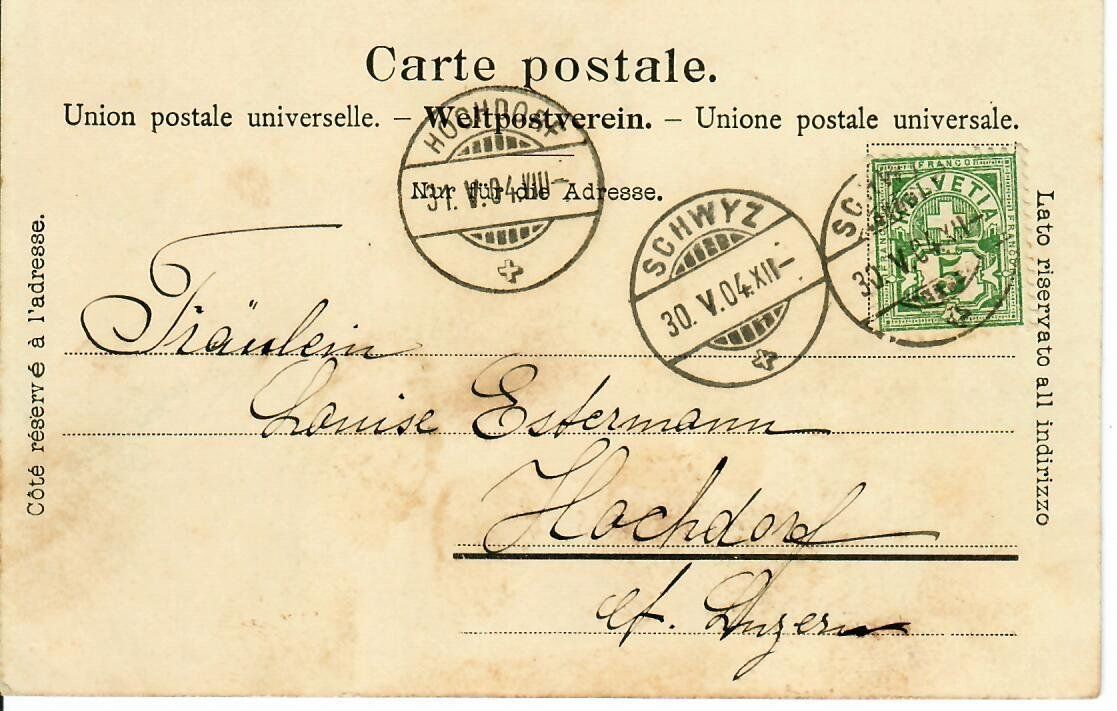 Carte postale.
Union postale universelle. – Weltpostverein. – Unione postale universale.
Nur für die Adresse.
HOCHDORF
31. V. 04. VIII –
SCHWYZ
30. V. 04. XII –
SCHWYZ
30. V. 04. XII –
FRANCO
HELVETIA
FRANCO
FRANCO
Côté réservé à l'adresse.
Lato riservato all indirizzo
Fräulein
Louise Estermann
Hochdorf
ct. Luzern